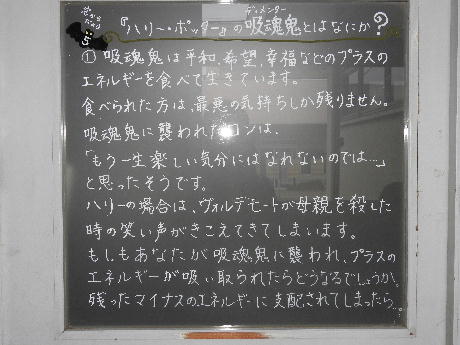 ディメンター
『ハリー・ポッター』の吸魂鬼とはなにか?
5
① 吸魂鬼は平和、希望、幸福などのプラスの
エネルギーを食べて生きています。
食べられた方は、最悪の気持ちしか残りません。
吸魂鬼に襲われたロンは、
「もう一生楽しい気分にはなれないのでは…」
と思ったそうです。
ハリーの場合は、ヴォルデモートが母親を殺した
時の笑い声がきこえてきてしまいます。
もしもあなたが吸魂鬼に襲われ、プラスの
エネルギーが吸い取られたらどうなるでしょうか。
残ったマイナスのエネルギーに支配されてしまったら…?